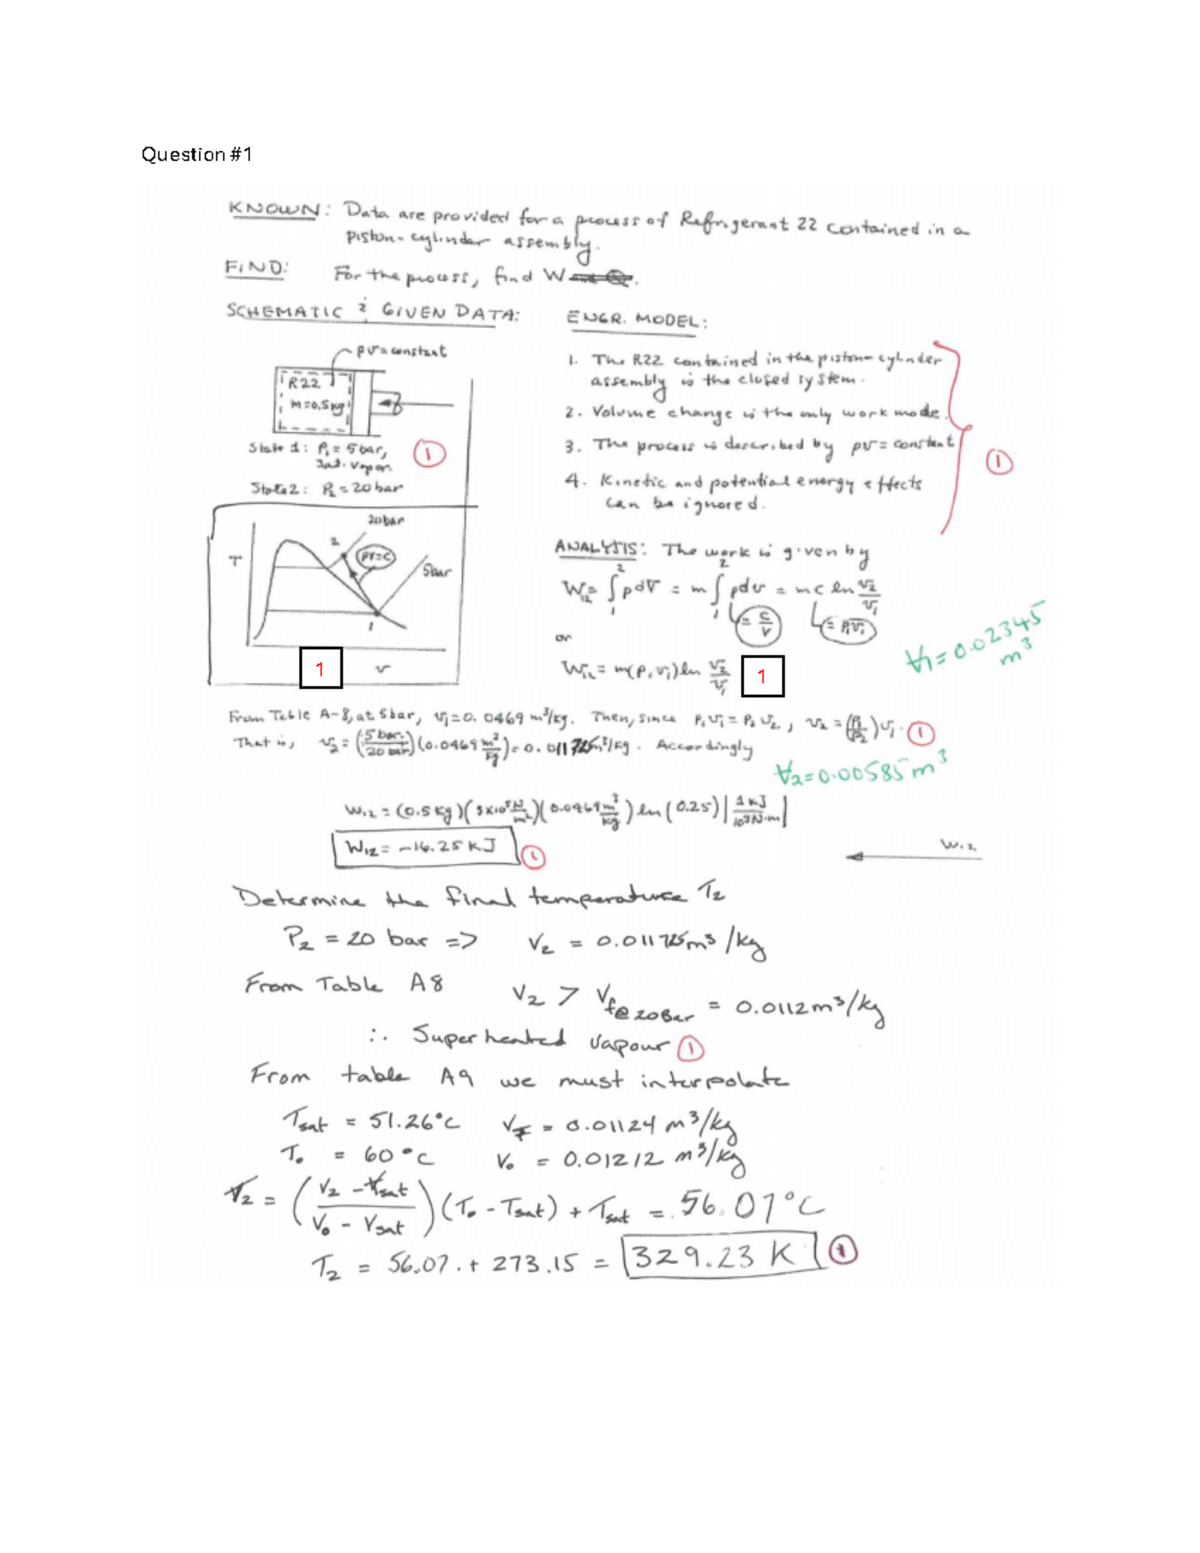 Question #1
KNOWN: Data are provided for a process of Refrigerant 22 contained in a
piston-cylinder assembly.
FIND: For the process, find W
SCHEMATIC & GIVEN DATA:
pv = constant
R22
m=0.5kg
State 1: P₁ = 5 bar,
Sat. vapor.
1
State 2: P₂ = 20 bar
20 bar
2
pv=c
5bar
T
1
v
1
ENGR. MODEL:
1. The R22 contained in the piston-cylinder
assembly is the closed system.
2. Volume change is the only work mode.
3. The process is described by pv = constant
4. Kinetic and potential energy effects
can be ignored.
1
ANALYSIS: The work is given by
W₁₂ = ∫₁² p dV = m ∫₁² p dv = mc ln v₂/v₁
= c/v
= P₁v₁
or
W₁₂ = m(P₁v₁) ln v₂/v₁
1
V₁ = 0.02345
m³
From Table A-8, at 5 bar, v₁ = 0.0469 m³/kg. Then, since P₁v₁ = P₂v₂, v₂ = (P₁/P₂)v₁. 1
That is, v₂ = (5 bar/20 bar)(0.0469 m³/kg) = 0.011725 m³/kg. Accordingly
V₂=0.00585 m³
W₁₂ = (0.5 kg)(5×10⁵ N/m²)(0.0469 m³/kg) ln(0.25) |1 kJ/10³ N·m|
W₁₂ = -16.25 kJ 1
W₁₂
Determine the final temperature T₂
P₂ = 20 bar => v₂ = 0.011725 m³/kg
From Table A8 v₂ > v f@20Bar = 0.0112 m³/kg
∴ Superheated vapour 1
From table A9 we must interpolate
Tsat = 51.26°C
T₀ = 60°C v₀ = 0.01212 m³/kg
T₂ = (v₂ - vsat / v₀ - vsat)(T₀ - Tsat) + Tsat = 56.07°C
T₂ = 56.07 + 273.15 = 329.23 K 1